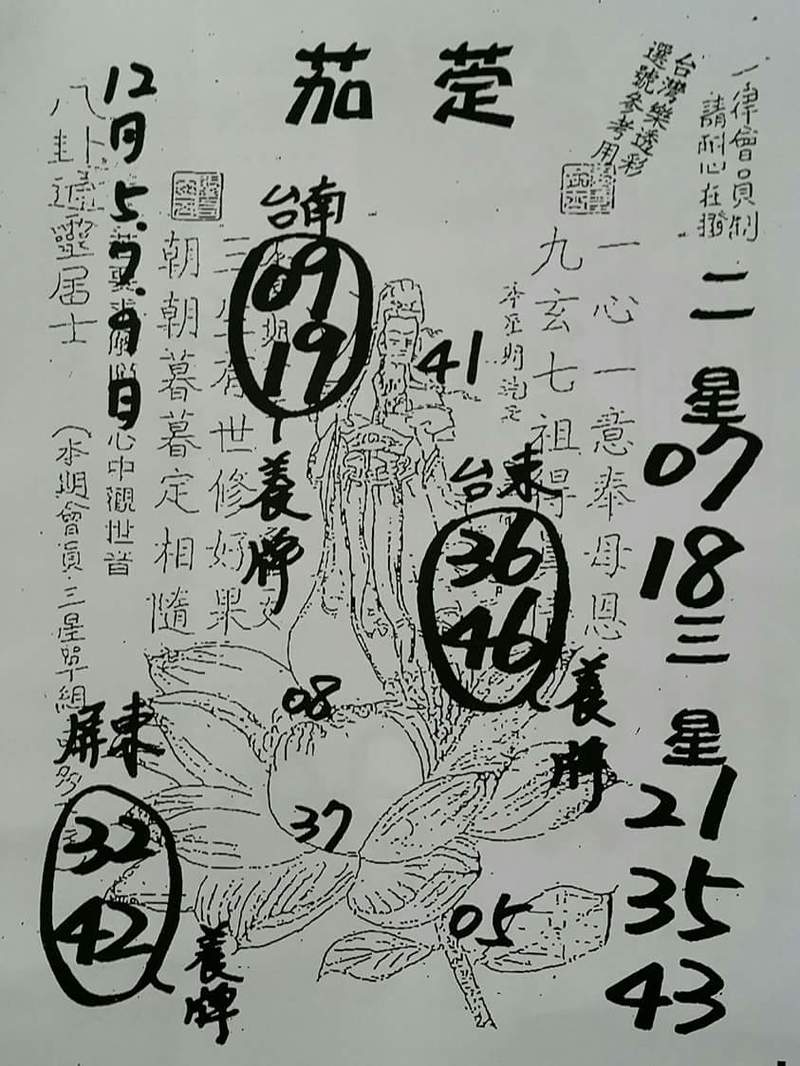 茄萣
一律會員制
請耐心在撥
台灣樂透彩
選號參考用
二星
07
18
三星
21
35
43
一心一意奉母恩
九玄七祖得
台南
09
19
養牌
41
台東
36
46
養牌
三生有世修好果
朝朝暮暮定相隨
12月5.7.9日
心中觀世音
八卦
靈居士
(本期會員三星單組
08
37
05
屏東
32
42
養牌